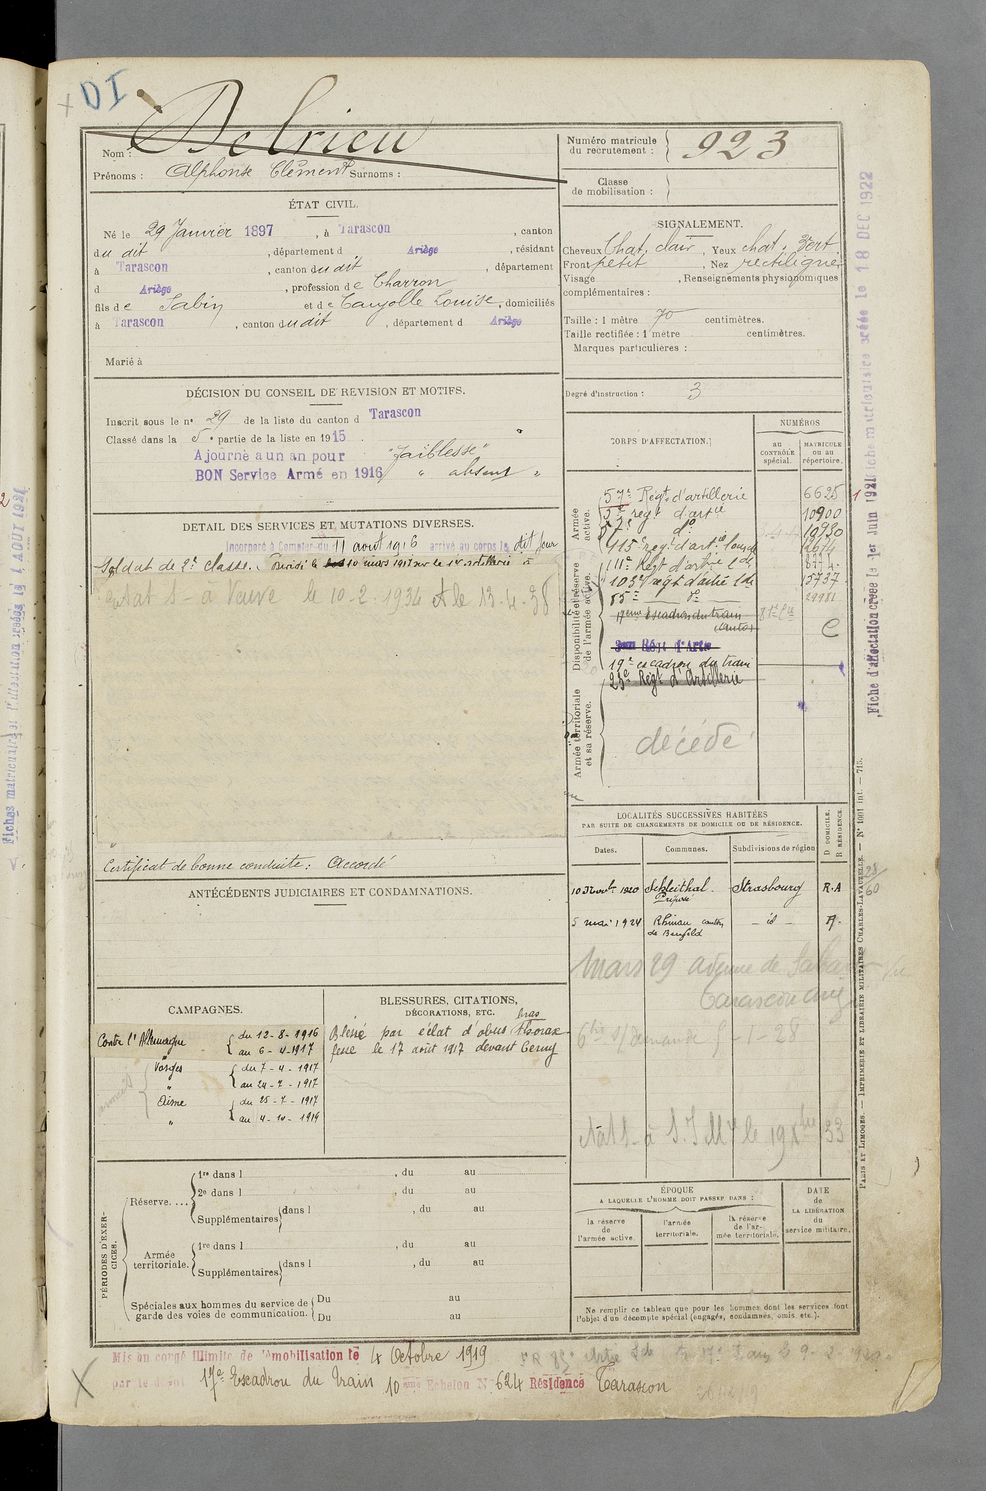 DI
Nom : Delrieu
Prénoms : Alphonse Clément Surnoms :
Numéro matricule du recrutement : 923
Classe de mobilisation :
ÉTAT CIVIL.
Né le 29 Janvier 1897, à Tarascon, canton
du dit, département d Ariège, résidant
à Tarascon, canton du dit, département
d Ariège, profession de Charron
fils de Sabin et de Louise, domiciliés
à Tarascon, canton du dit, département d Ariège
Marié à
SIGNALEMENT.
Cheveux Chat. clair, Yeux chat. Vert
Front petit, Nez rectiligne
Visage , Renseignements physionomiques
complémentaires :
Taille : 1 mètre 70 centimètres.
Taille rectifiée : 1 mètre centimètres.
Marques particulières :
Degré d'instruction : 3
DÉCISION DU CONSEIL DE REVISION ET MOTIFS.
Inscrit sous le n° 29 de la liste du canton d Tarascon
Classé dans la 5e partie de la liste en 1915.
Ajourné a un an pour "faiblesse"
BON Service Armé en 1916 " absent "
DETAIL DES SERVICES ET MUTATIONS DIVERSES.
Incorporé à Compter du 11 août 1916 arrivé au corps le dit jour
Soldat de 2e classe.
10 mars 1917 sur le
à
le 10-2-1934 et le 13-4-38
Certificat de bonne conduite : Accordé
ANTÉCÉDENTS JUDICIAIRES ET CONDAMNATIONS.
CORPS D'AFFECTATION.
NUMÉROS
au CONTRÔLE spécial.
MATRICULE ou au répertoire.
Armée active.
57e Régt d'artillerie 6625
5e régt d'artie 10900
57e do 19930
115e regt d'art. lourde
Disponibilité et réserve de l'armée active.
111e Régt d'artie lde
103e régt d'artie lde 15737
85e do
17eme Escadron du train
19e escadron du train
23e Régt d'Artillerie
Armée territoriale et sa réserve.
décédé
LOCALITÉS SUCCESSIVES HABITÉES
PAR SUITE DE CHANGEMENTS DE DOMICILE OU DE RÉSIDENCE.
Dates.
Communes.
Subdivisions de région
D. DOMICILE. R. RÉSIDENCE.
1920 Schleithal. Strasbourg R.A
5 mai 1924 Rhinau canton de Benfeld - id - R.
Mars 29 avenue de
Tarascon
-1-28
28/60
CAMPAGNES.
Contre l'Allemagne du 12-8-1916
au 6-4-1917
Vosges du 7-4-1917
" au 24-7-1917
Aisne du 25-7-1917
" au 4-10-1919
BLESSURES, CITATIONS,
DÉCORATIONS, ETC.
bras
Blessé par éclat d'obus thorax
fesse le 17 août 1917 devant Cerny
PÉRIODES D'EXERCICES.
Réserve....
1re dans l , du au
2e dans l , du au
Supplémentaires dans l , du au
Armée territoriale.
1re dans l , du au
Supplémentaires dans l , du au
Spéciales aux hommes du service de garde des voies de communication.
Du au
Du au
ÉPOQUE
A LAQUELLE L'HOMME DOIT PASSER DANS :
la réserve de l'armée active.
l'armée territoriale.
la réserve de l'armée territoriale.
DATE DE LA LIBÉRATION du service militaire.
Ne remplir ce tableau que pour les hommes dont les services font
l'objet d'un décompte spécial (engagés, condamnés, omis, etc.).
Mis en congé illimité de démobilisation le 4 Octobre 1919
par le dépôt 17e Escadron du Train 10eme Echelon N° 624 Résidence Tarascon
PARIS ET LIMOGES. — IMPRIMERIE ET LIBRAIRIE MILITAIRES CHARLES-LAVAUZELLE. — N° 1001 int. — 715.
Fiche d'affectation créée le 1er Juin 1921
Fiche matriculaire créée le 18 DEC 1922